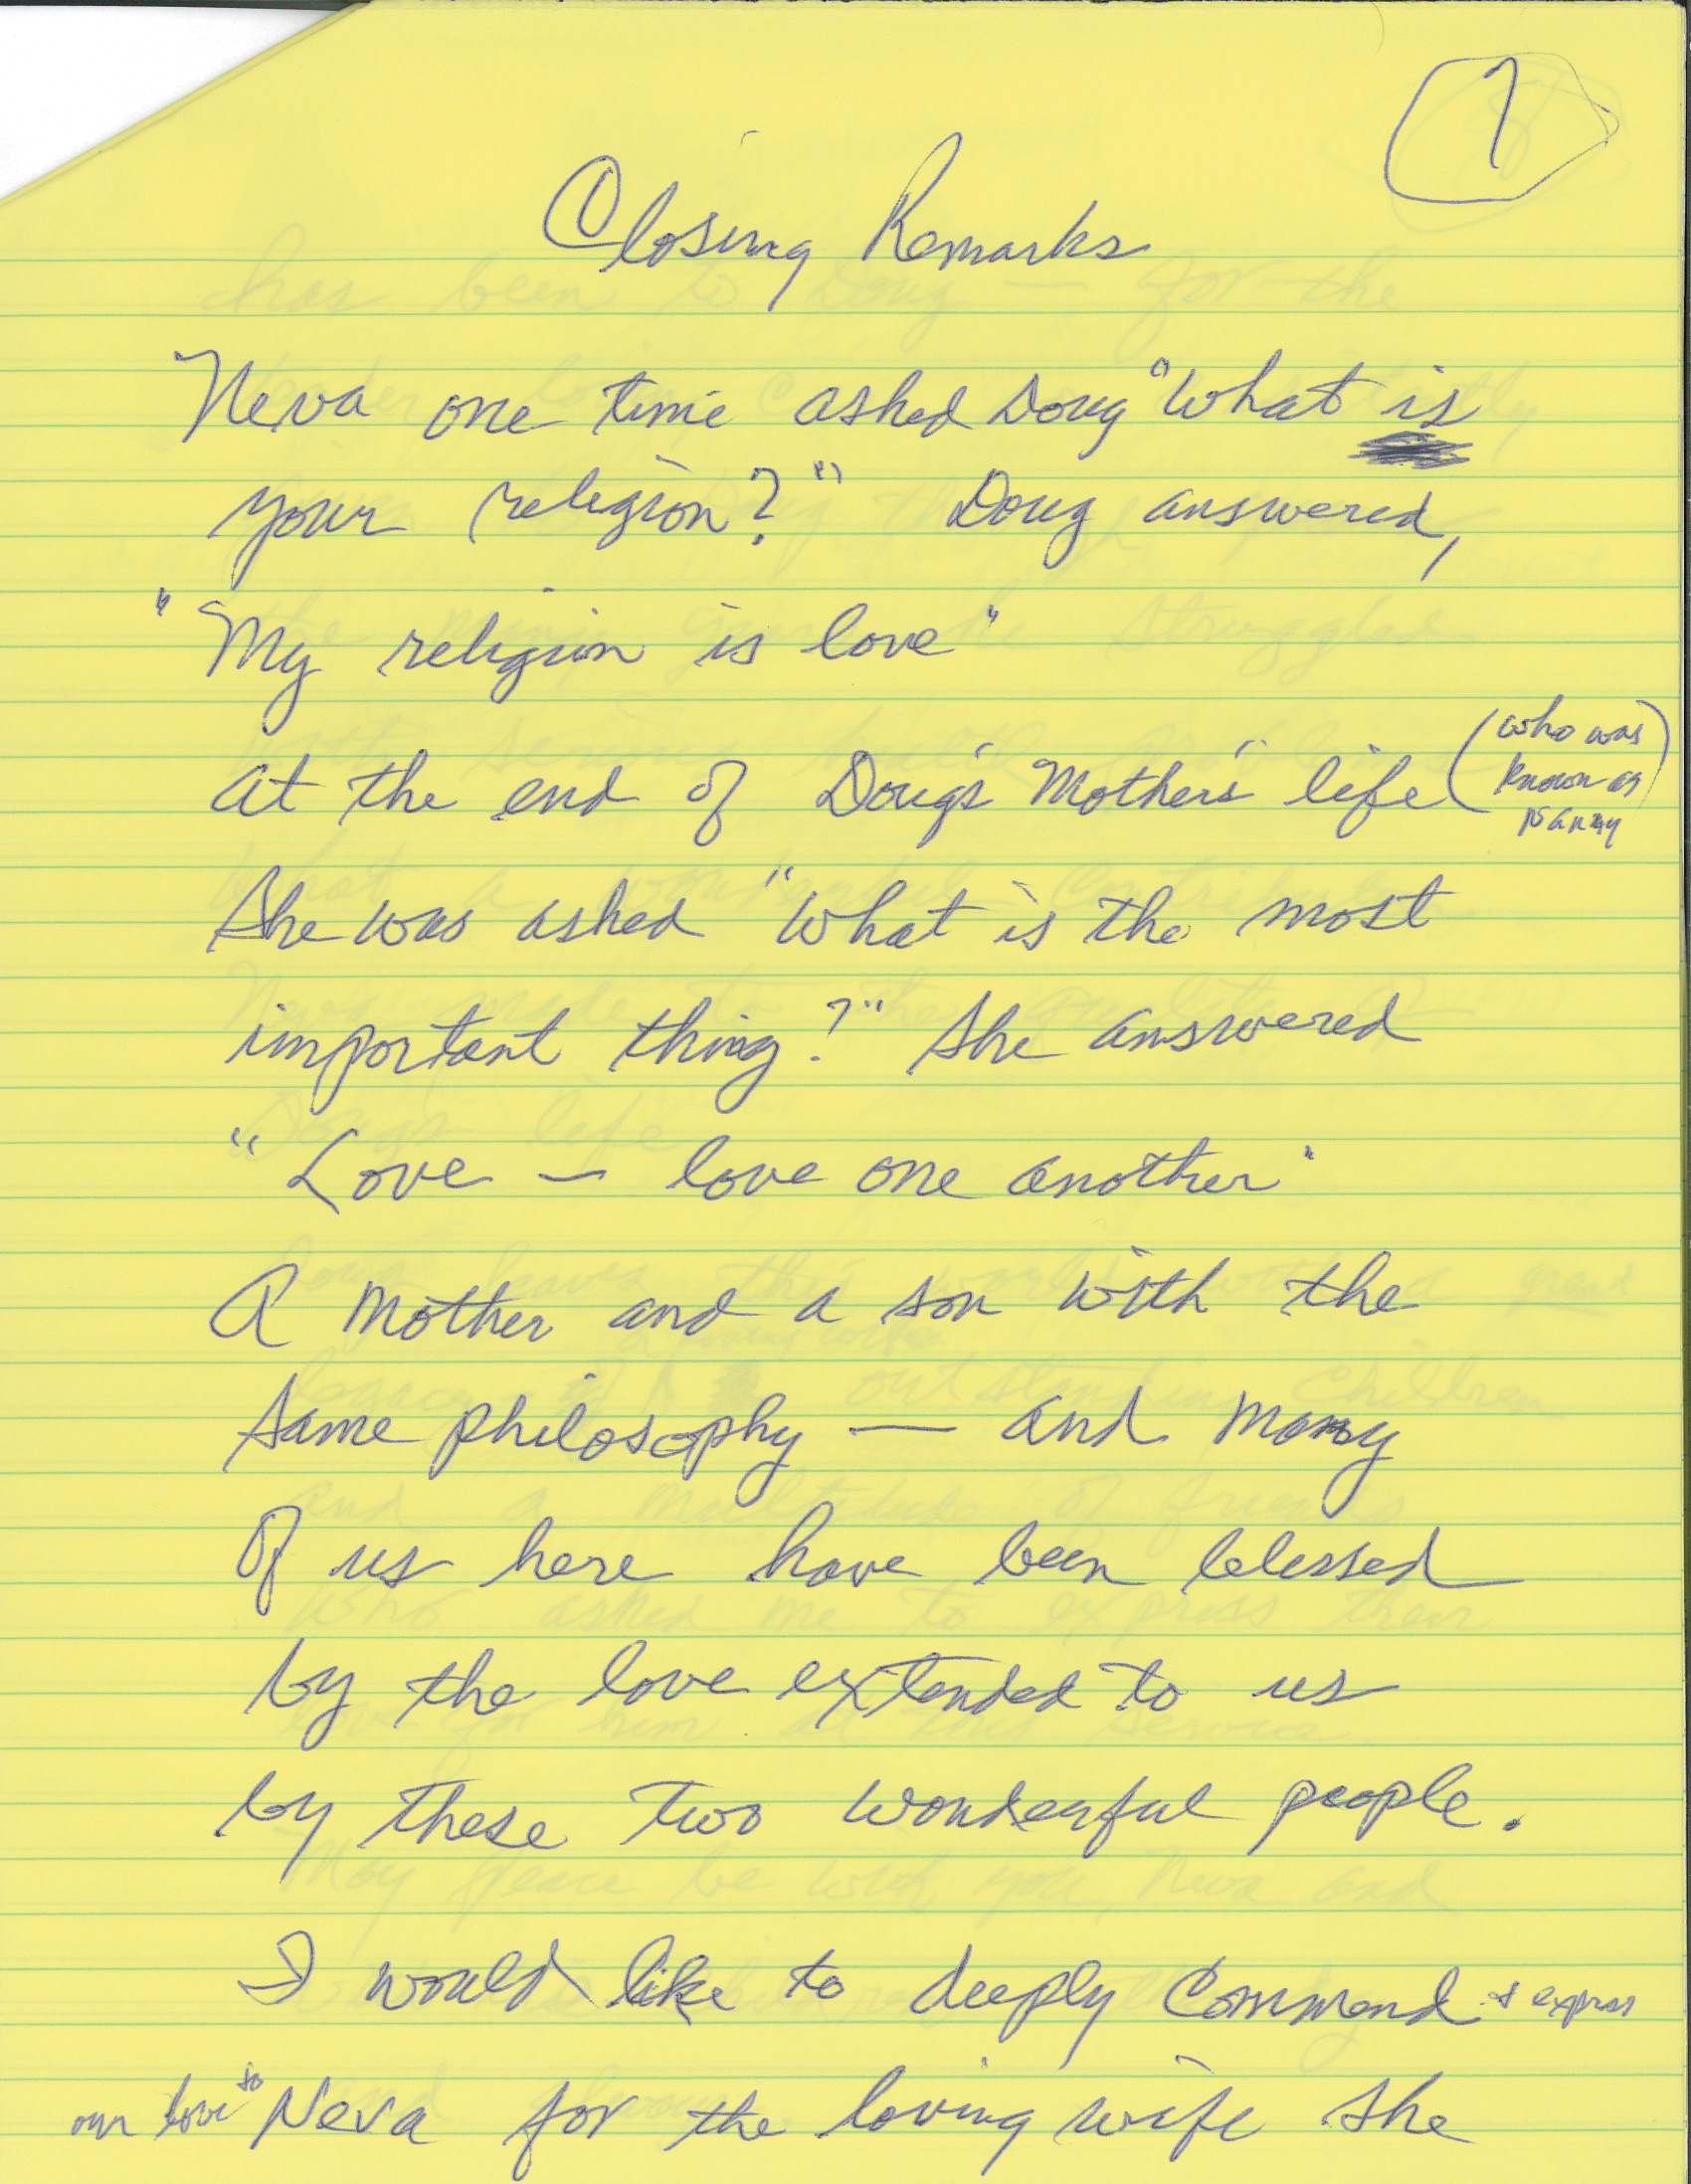 1
Closing Remarks
Neva one time asked Doug "What is
your religion?" Doug answered,
"My religion is love"
At the end of Doug's Mother's life (who was
known as
Nanny)
She was asked "What is the most
important thing?" She answered
"Love — love one another"
A Mother and a son with the
same philosophy — and many
of us here have been blessed
by the love extended to us
by these two wonderful people.
I would like to deeply commend & express
our love to Neva for the loving wife she